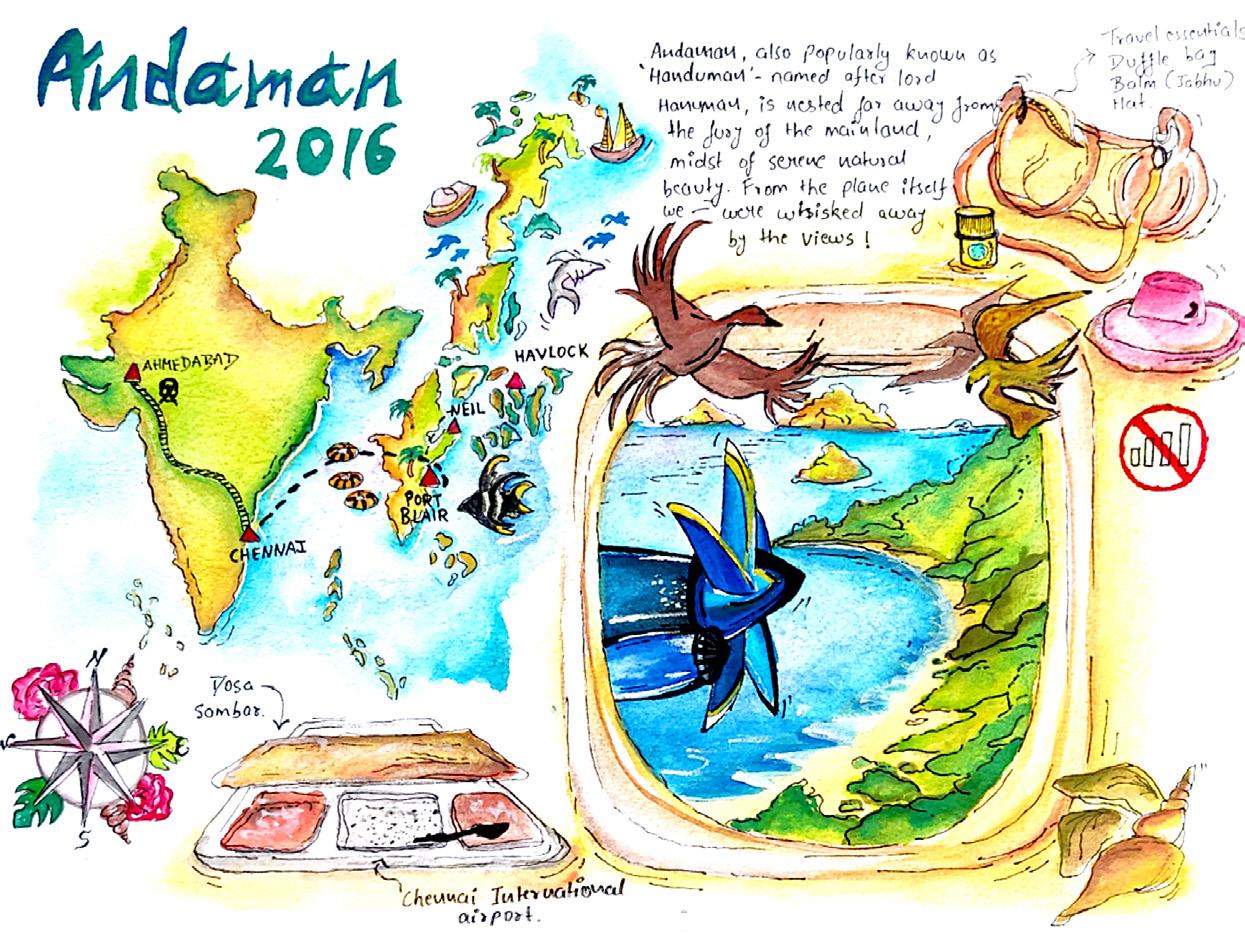 Andaman
2016
Andaman, also popularly known as
'Handuman'- named after lord
Hanuman, is nested far away from
the fury of the mainland,
midst of serene natural
beauty. From the plane itself
we - were whisked away
by the views !
Travel essentials
Duffle bag
Balm (Jabhu)
Hat.
AHMEDABAD
HAVLOCK
NEIL
PORT
BLAIR
CHENNAI
N
S
Dosa
Sambar.
Chennai International
airport.